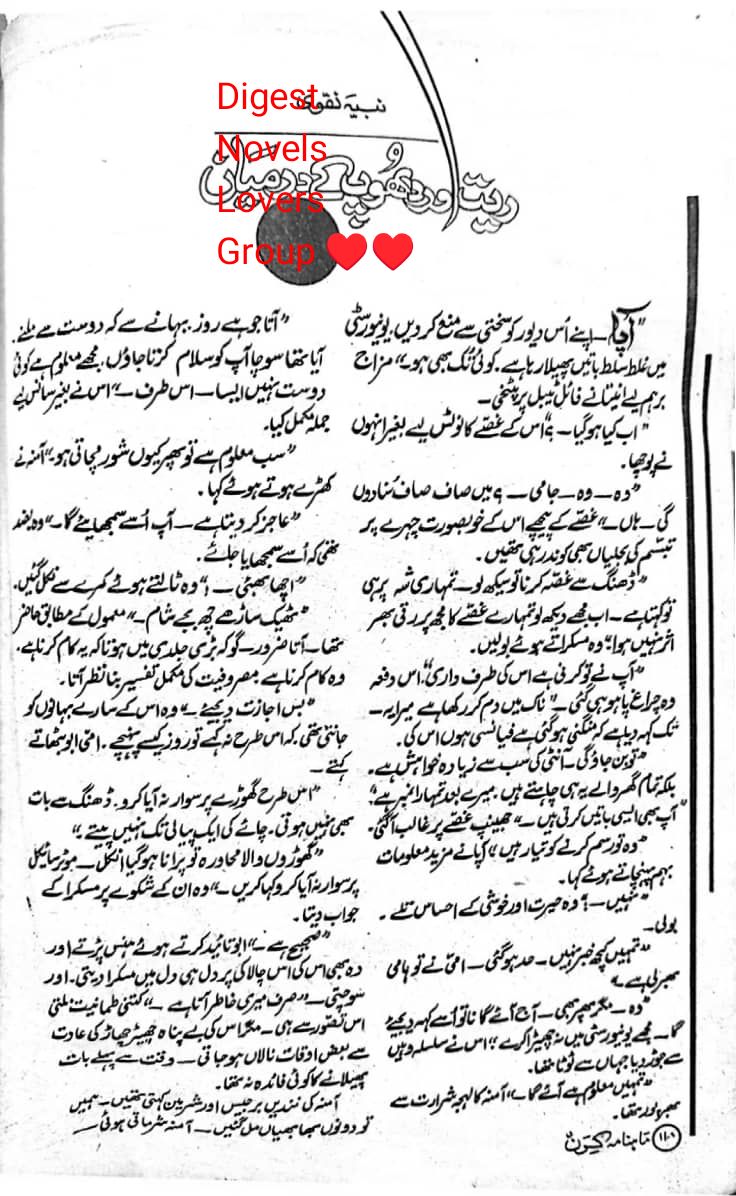 Digest
Novels
Lovers
Group ❤❤
نبیہ نقوی
ریت اور دھوپ کے درمیان
"آپا۔ اپنے اُس دیور کو سختی سے منع کر دیں، یونیورسٹی
میں غلط سلط باتیں پھیلا رہا ہے۔ کوئی تُک بھی ہو۔" مزاج
برہم لیے انیتا نے فائل ٹیبل پر پٹخی۔
"اب کیا ہو گیا۔؟" اس کے غصّے کا نوٹس لیے بغیر انہوں
نے پوچھا۔
"وہ۔ وہ۔ جامی۔؟ میں صاف صاف سُنا دوں
گی۔ ہاں۔" غصّے کے پیچھے اس کے خوبصورت چہرے پر
تبسّم کی بجلیاں بھی کوند رہی تھیں۔
"ڈھنگ سے غصّہ کرنا تو سیکھ لو۔ تمہاری شہ پر ہی
تو کہتا ہے۔ اب مجھے دیکھ لو تمہارے غصّے کا مجھ پر رتی بھر
اثر نہیں ہوا۔" وہ مسکراتے ہوئے بولیں۔
"آپ نے تو کرنی ہے اس کی طرف داری۔" اس دفعہ
وہ چراغ پا ہو ہی گئی۔ "ناک میں دم کر رکھا ہے میرا یہ۔
تک کہہ دیا ہے کہ منگنی ہو گئی ہے فیانسی ہوں اس کی۔
"تو بن جاؤ گی۔ آنٹی کی سب سے زیادہ خواہش ہے۔
بلکہ تمام گھر والے یہ ہی چاہتے ہیں۔ میرے بعد تمہارا نمبر ہے۔"
"آپ بھی ایسی باتیں کرتی ہیں۔" جھینپ غصّے پر غالب آ گئی۔
"وہ تو رسم کرنے کو تیار ہیں" آپا نے مزید معلومات
بہم پہنچاتے ہوئے کہا۔
"نہیں۔!" وہ حیرت اور خوشی کے احساس تلے۔
بولی۔
"تمہیں کچھ خبر نہیں۔ حد ہو گئی۔ امی نے تو ہامی
بھر لی ہے۔"
"وہ۔ مگر پھر بھی۔ آج آئے گا نا تو اُسے کہہ دیجئے
گا۔ مجھے یونیورسٹی میں نہ چھیڑا کرے" اس نے سلسلہ وہیں
سے جوڑ دیا جہاں سے ٹوٹا تھا۔
"تمہیں معلوم ہے آئے گا۔" آمنہ کا لہجہ شرارت سے
بھرپور تھا۔
"آتا جو ہے روز بہانے سے کہ دوست سے ملنے
آیا تھا سوچا آپ کو سلام کرتا جاؤں۔ مجھے معلوم ہے کوئی
دوست نہیں ایسا۔ اس طرف۔" اس نے بغیر سانس لیے
جملہ مکمل کیا۔
"سب معلوم ہے تو پھر کیوں شور مچاتی ہو۔" آمنہ نے
کھڑے ہوتے ہوئے کہا۔
"عاجز کر دیتا ہے۔ آپ اُسے سمجھائیے گا۔" وہ بضد
تھی کہ اُسے سمجھایا جائے۔
"اچھا بھئی۔!" وہ ٹالتے ہوئے کمرے سے نکل گئیں۔
"ٹھیک ساڑھے چھ بجے شام۔" معمول کے مطابق حاضر
تھا۔ آتا ضرور۔ گو کہ بڑی جلدی میں ہوتا کہ یہ کام کرنا ہے،
وہ کام کرنا ہے، مصروفیت کی مکمل تفسیر بنا نظر آتا۔
"بس اجازت دیجئے۔" وہ اس کے سارے بہانوں کو
جانتی تھی۔ کہ اس طرح نہ کہے تو روز کیسے پہنچے۔ امی ابو بٹھاتے
کہتے۔
"اس طرح گھوڑے پر سوار نہ آیا کرو۔ ڈھنگ سے بات
بھی نہیں ہوتی۔ چائے کی ایک پیالی تک نہیں پیتے۔"
"گھوڑوں والا محاورہ تو پرانا ہو گیا انکل۔ موٹر سائیکل
پر سوار نہ آیا کرو کہا کریں۔" وہ ان کے شکوے پر مسکرا کے
جواب دیتا۔
"صحیح ہے۔" ابو تائید کرتے ہوئے ہنس پڑتے اور
وہ بھی اس کی اس چالاکی پر دل ہی دل میں مسکرا دیتی۔ اور
سوچتی۔ "صرف میری خاطر آتا ہے۔" کتنی طمانیت ملتی
اس تصور سے ہی۔ مگر اس کی بے پناہ چھیڑ چھاڑ کی عادت
سے بعض اوقات نالاں ہو جاتی۔ وقت سے پہلے بات
پھیلانے کا کوئی فائدہ نہ تھا۔
آمنہ کی نندیں برجیس اور شرمین کہتی تھیں۔ ہمیں
تو دونوں بھابھیاں مل گئیں۔ آمنہ شرماتی ہوئی
ماہنامہ کرن